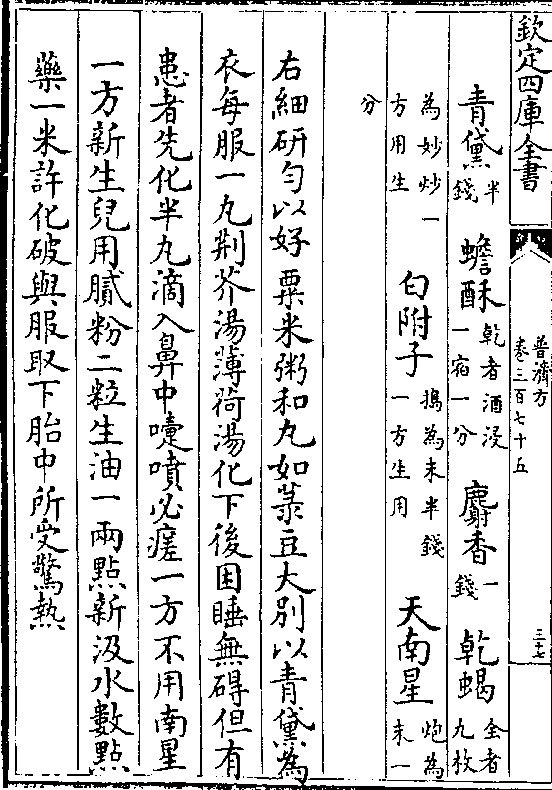 欽定四庫全書
普濟方
卷三百七十五
三十七
青黛半錢 蟾酥乾者酒浸一宿一分 麝香一錢 乾蝎全者九枚
為妙炒一方用生 白附子搗為末半錢一方生用 天南星炮為末一
分
右細研勻以好粟米粥和丸如菉豆大別以青黛為
衣每服一丸荆芥湯薄荷湯化下後困睡無碍但有
患者先化半丸滴入鼻中嚏噴必瘥一方不用南星
一方新生兒用膩粉二粒生油一兩點新汲水數點
藥一米許化破與服取下胎中所受驚熱